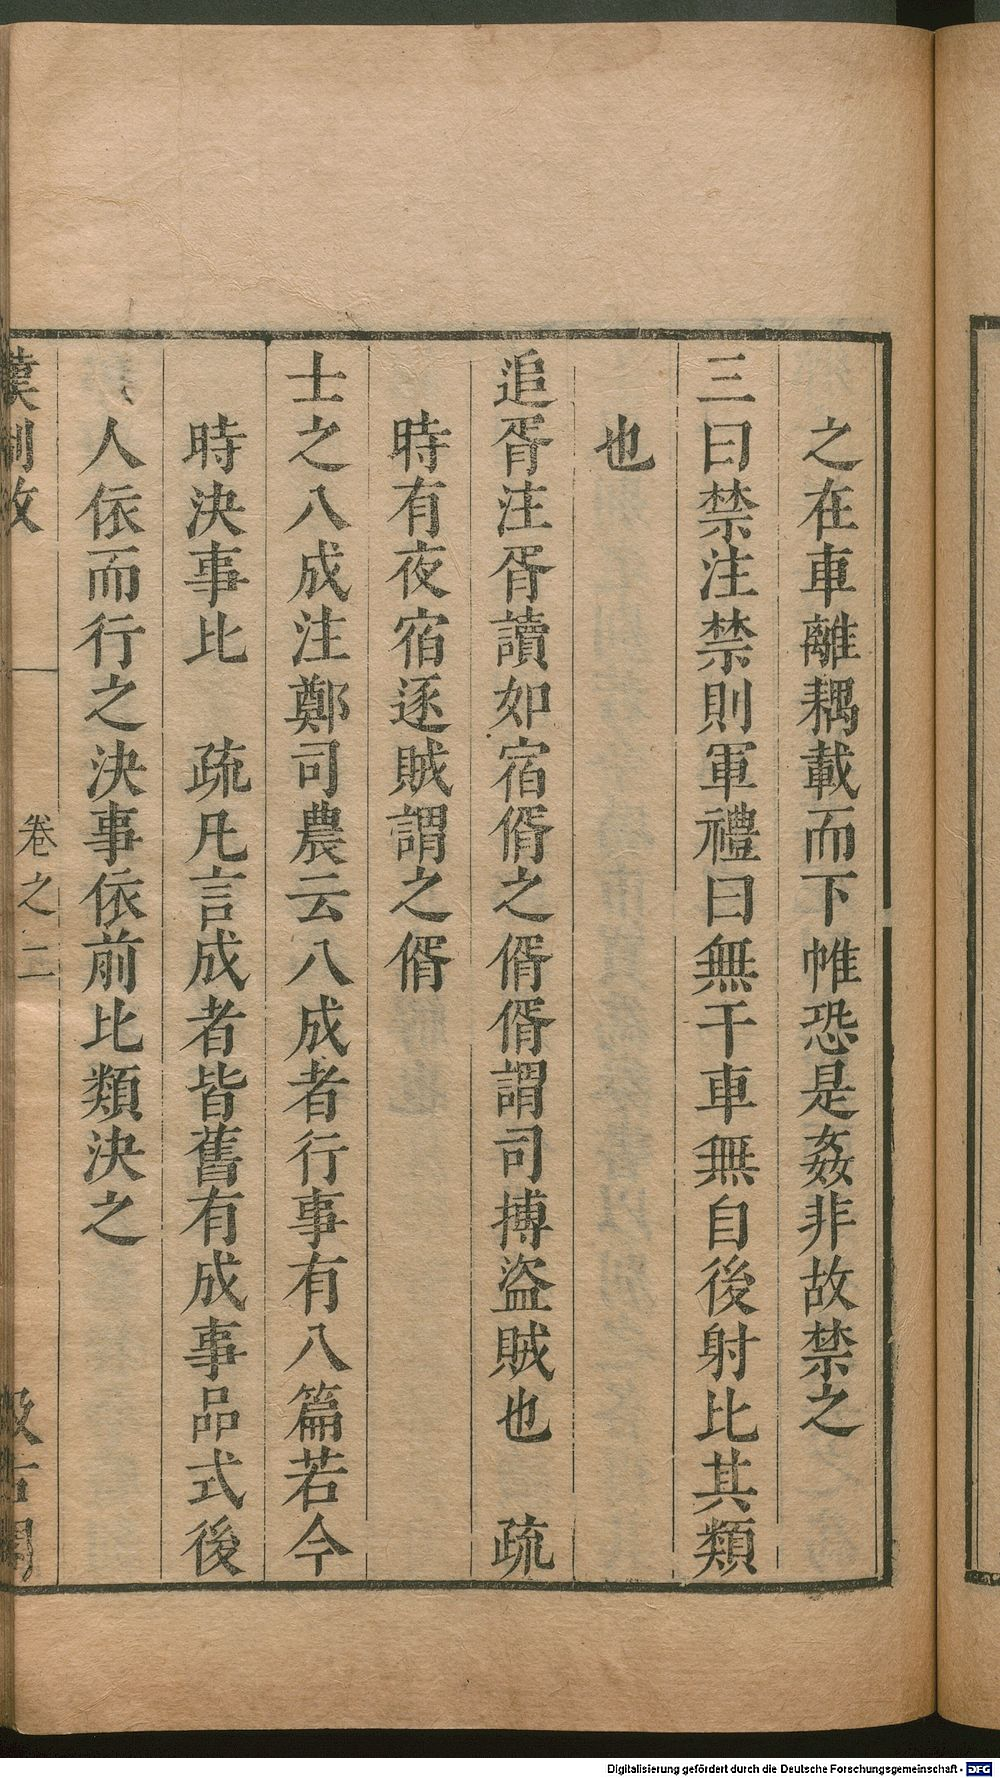 之在車離耦載而下帷恐是姦非故禁之
三曰禁注禁則軍禮曰無干車無自後射比其類
也
追胥注胥讀如宿偦之偦偦謂司搏盜賊也　疏
時有夜宿逐賊謂之偦
士之八成注鄭司農云八成者行事有八篇若今
時決事比　疏凡言成者皆舊有成事品式後
人依而行之決事依前比類決之
漢制攷　卷之二　汲古閣
Digitalisierung gefördert durch die Deutsche Forschungsgemeinschaft - DFG